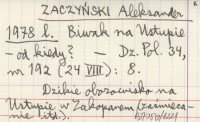 ZACZYŃSKI Aleksander
1978 r. Biwak na Ustupie
- od kiedy? - Dz. Pol. 34,
nr 192 (24 VIII): 8.
Dzikie obozowisko na
Ustupie w Zakopanem (zaśmieca-
nie itd.).